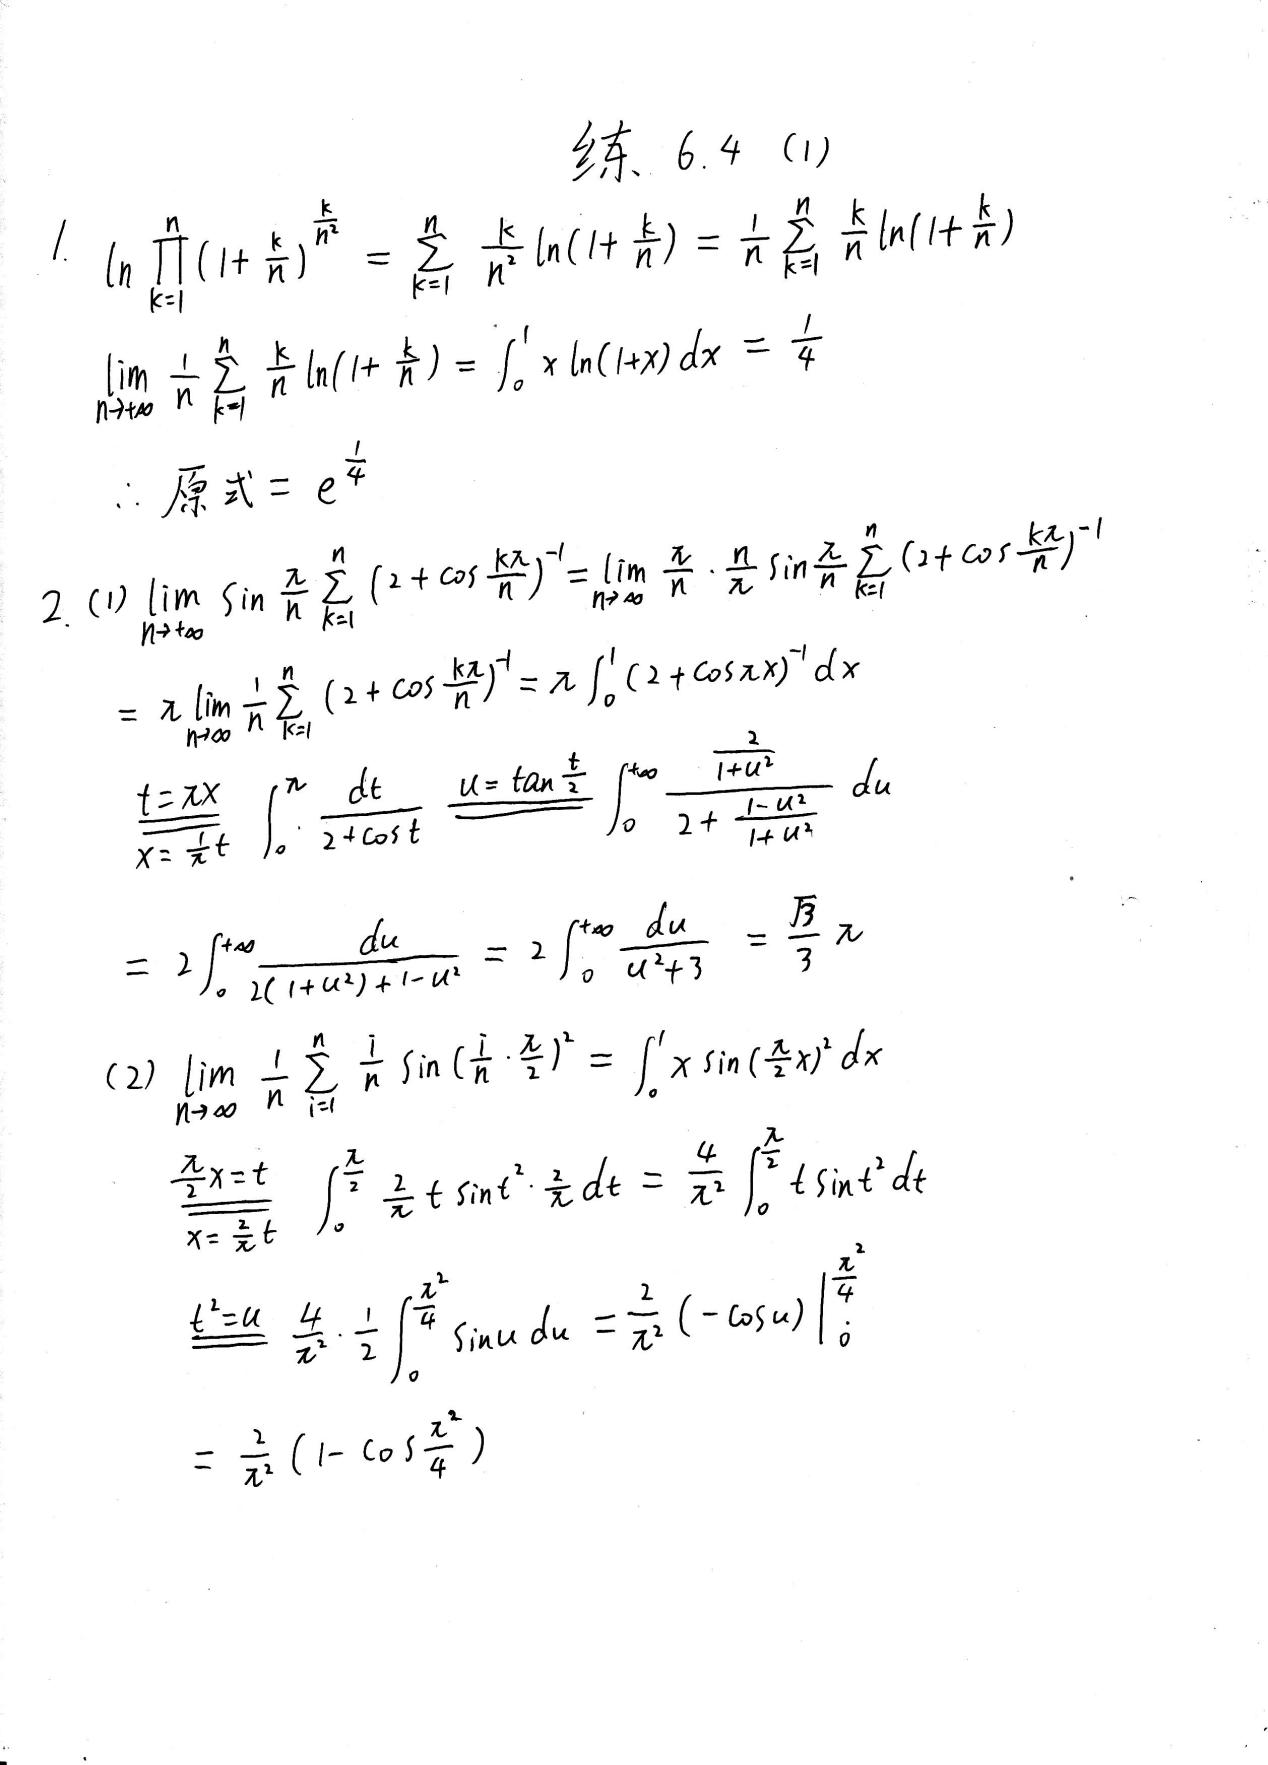 练 6.4 (1)
1. ln ∏_{k=1}^{n} (1+k/n)^{k/n²} = ∑_{k=1}^{n} k/n² ln(1+k/n) = 1/n ∑_{k=1}^{n} k/n ln(1+k/n)
lim_{n→+∞} 1/n ∑_{k=1}^{n} k/n ln(1+k/n) = ∫_0^1 x ln(1+x) dx = 1/4
∴ 原式 = e^{1/4}
2. (1) lim_{n→+∞} sin π/n ∑_{k=1}^{n} (2+cos kπ/n)^{-1} = lim_{n→∞} π/n · n/π sin π/n ∑_{k=1}^{n} (2+cos kπ/n)^{-1}
= π lim_{n→∞} 1/n ∑_{k=1}^{n} (2+cos kπ/n)^{-1} = π ∫_0^1 (2+cosπx)^{-1} dx
t=πx x=1/π t ∫_0^π dt/(2+cost) u=tan t/2 ∫_0^{+∞} (2/(1+u²))/(2+(1-u²)/(1+u²)) du
= 2∫_0^{+∞} du/(2(1+u²)+1-u²) = 2∫_0^{+∞} du/(u²+3) = √3/3 π
(2) lim_{n→∞} 1/n ∑_{i=1}^{n} i/n sin(i/n · π/2)² = ∫_0^1 x sin(π/2 x)² dx
π/2 x=t x=2/π t ∫_0^{π/2} 2/π t sint² · 2/π dt = 4/π² ∫_0^{π/2} t sint² dt
t²=u 4/π² · 1/2 ∫_0^{π²/4} sinu du = 2/π² (-cosu) |_0^{π²/4}
= 2/π² (1-cos π²/4)